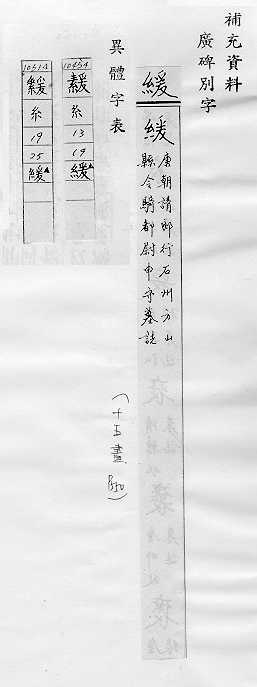 補充資料
廣碑別字
緩
緩 唐朝請郎行石州方山
縣令騎都尉申守墓誌
異體字表
10454
糸
13
19
緩
10514
糸
19
25
緩
(十五畫 B50)